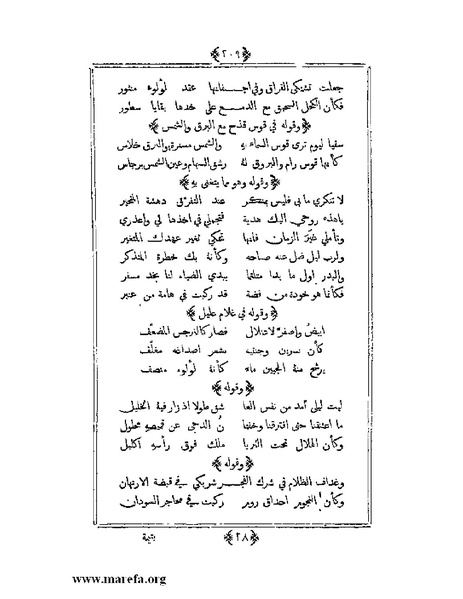 ﴿ ٢٠٩ ﴾
جعلت تشتكي الفراق وفي اجفانها عقد لؤلوء منثور
فكأن الكحل السحيق مع الدمع على خدها بقايا سطور
﴿ وقوله في قوس قذح مع البرق والشمس ﴾
سقيا ليوم ترى قوس السماء به والشمس مسفرة والبرق خلاس
كأنها قوس رام والبروق له رشق السهام وعين الشمس برجاس
﴿ وقوله وهو مما يتغنى به ﴾
لا تنكري ما بي فليس بمنكر عند التفرق دهشة المتحير
يا هذه روحي اليك هدية فتجملي في اخذها لي واعذري
وتأملي غير الزمان فانها تحكي تغير عهدك المتغير
ولرب ليل ضل عنه صباحه وكأنه بك خطرة المتذكر
والبدر اول ما بدا متلثما يبدي الضياء لنا بخد مسفر
فكأنما هو خودة من فضة قد ركبت في هامة من عنبر
﴿ وقوله في غلام عليل ﴾
ابيض واصفر لاعتلال فصار كالنرجس المضعف
كأن نسرين وجنتيه بشعر اصداغه مغلف
يرشح منه الجبين ماء كأنه لؤلوء منصف
﴿ وقوله ﴾
ليت ليلى أمد من نفس العا شق طولا اذ زار فيه الخليل
ما اعتنقنا حتى افترقنا وخلنا ن الدجى عن قميصه محلول
وكأن الهلال تحت الثريا ملك فوق رأسه اكليل
﴿ وقوله ﴾
وغداف الظلام في شرك الفجر شريكي في قبضة الارتهان
وكأن النجوم احداق روم ركبت في محاجر السودان
﴿ ٢٨ ﴾ يتيمة
www.marefa.org